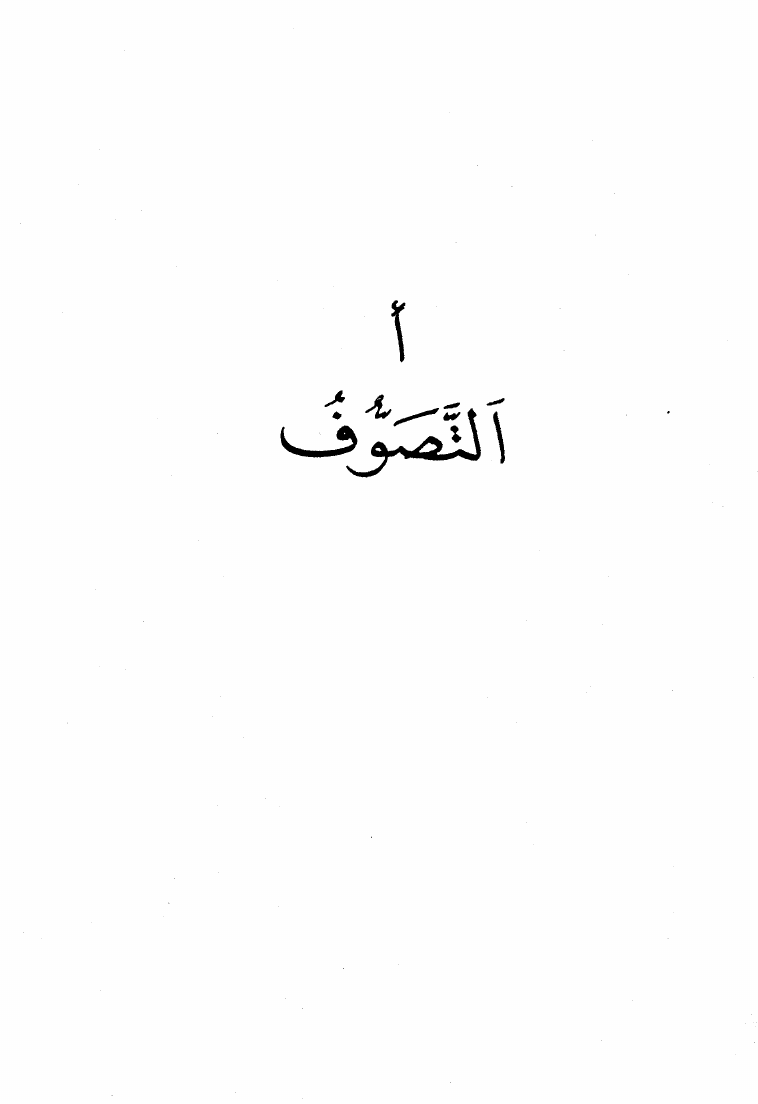 أ
اَلتَّصَوُّفُ